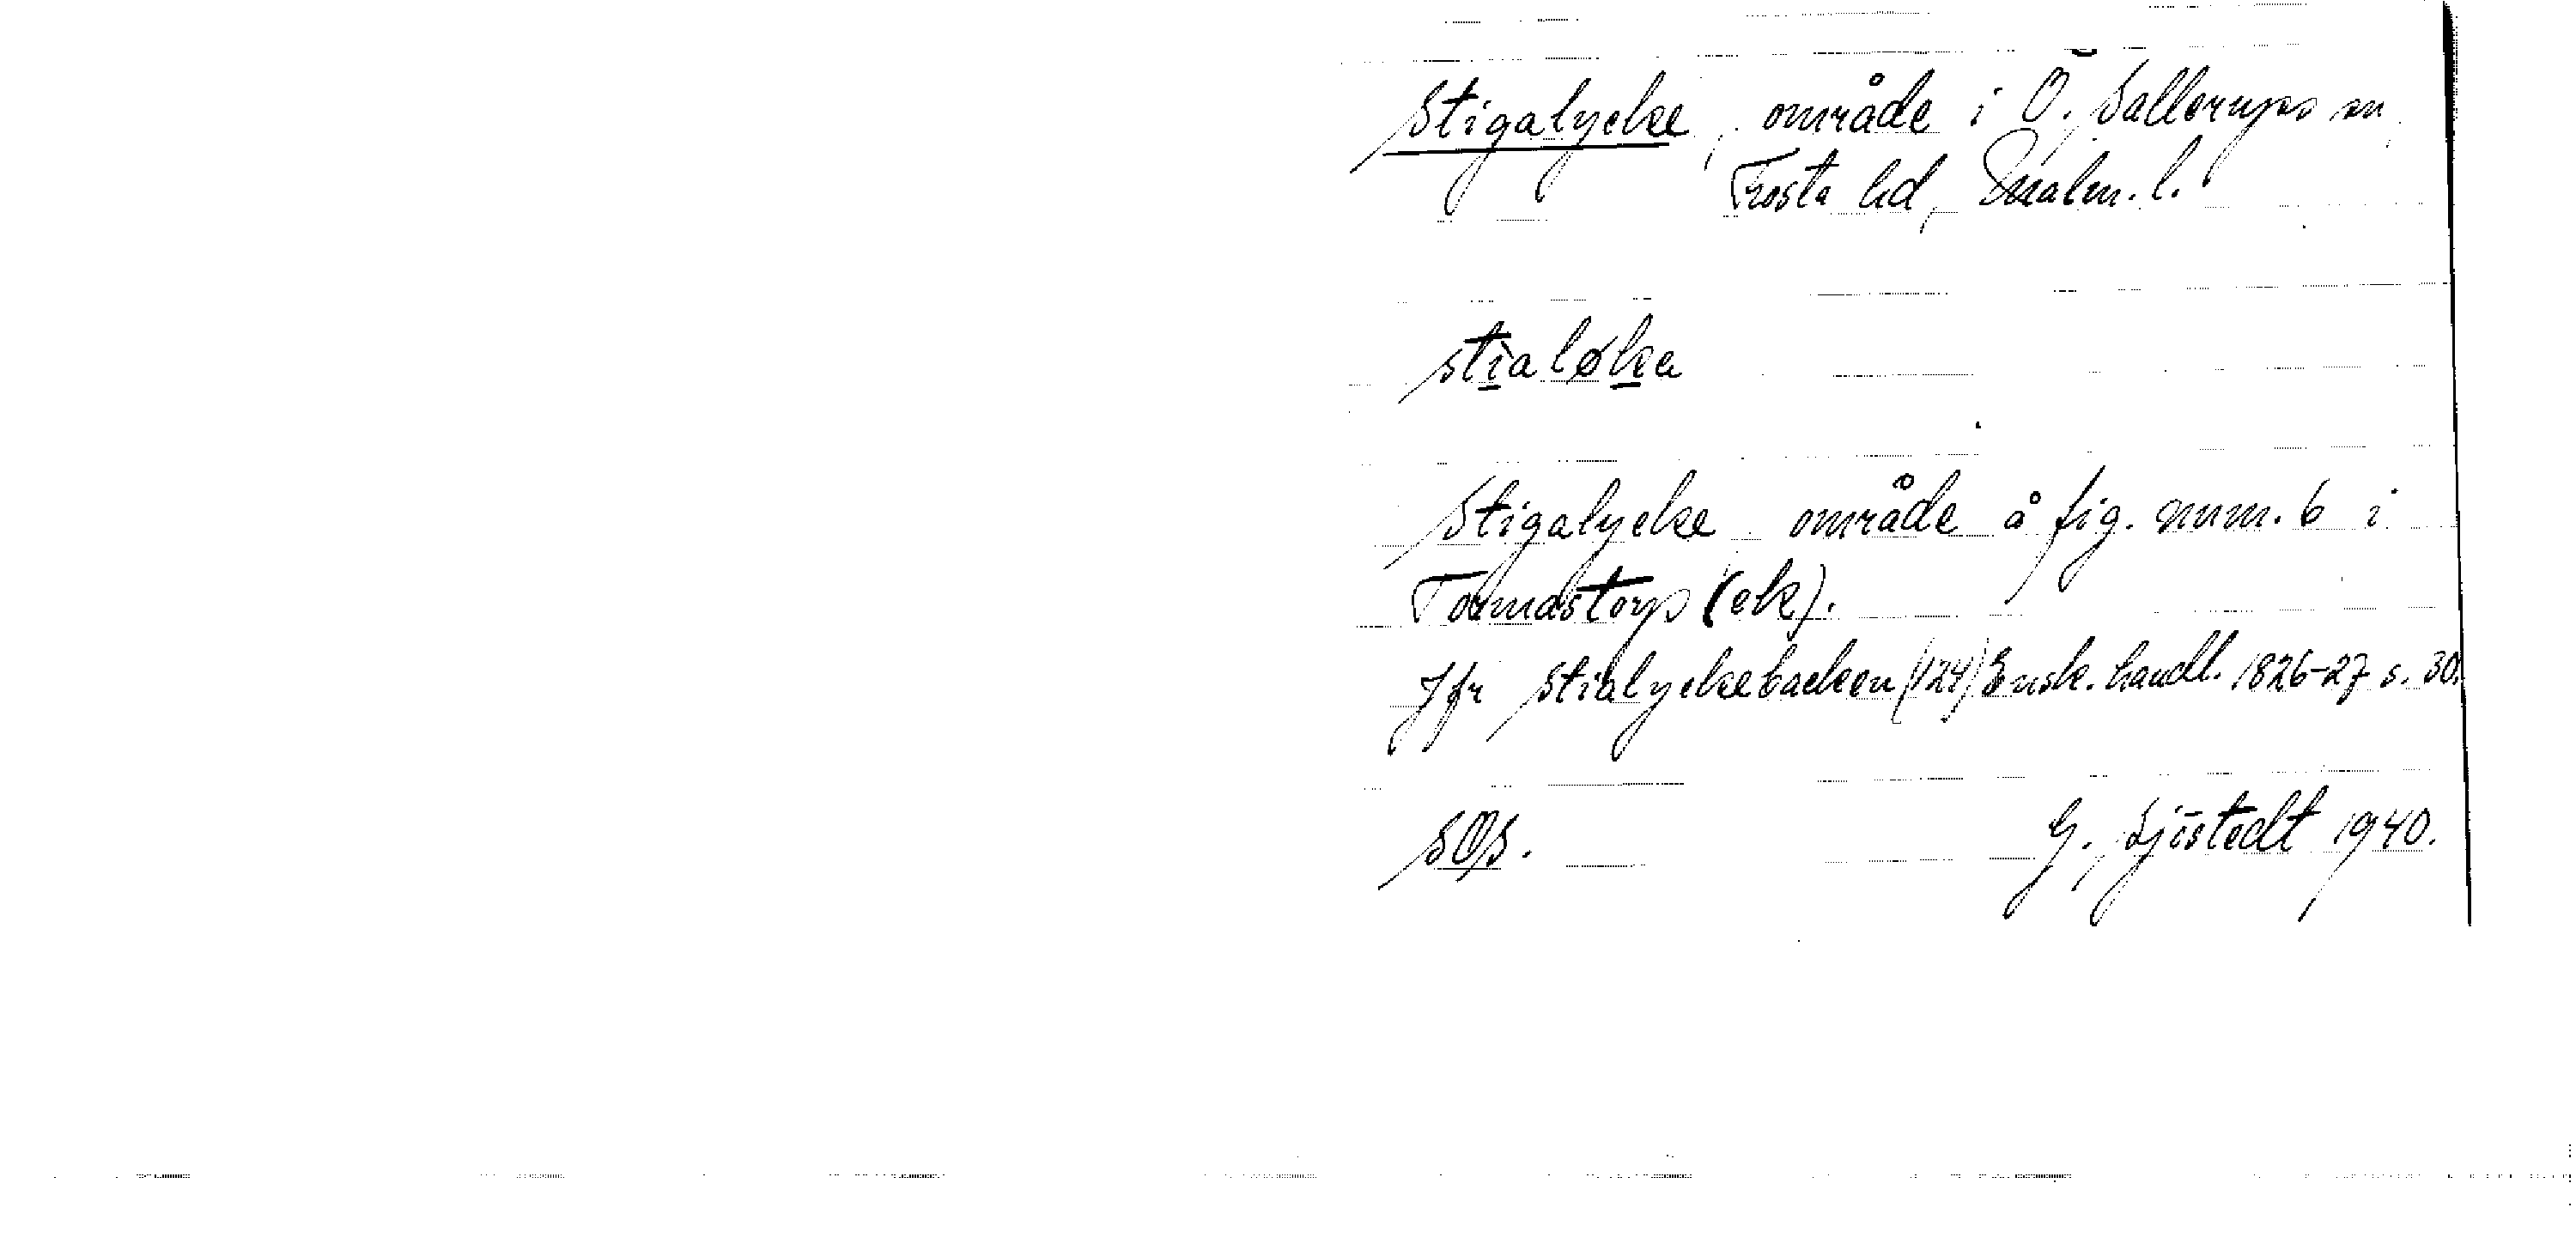 Stigalycke, område i Ö. Sallerups sn,
Frosta hd, Malm. l.
stialøka
Stigalycke område å fig. num. 6 i
Tormastorp (ek).
Jfr Stialyckebacken (124) Ensk. handl. 1826-27 s. 30.
SOS. G. Sjöstedt 1940.